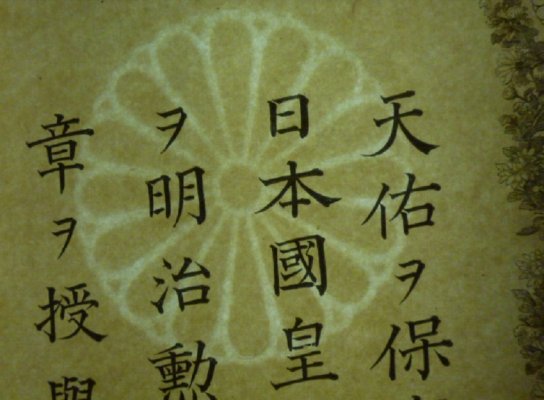 天佑ヲ保
日本國皇
ヲ明治勲
章ヲ授與